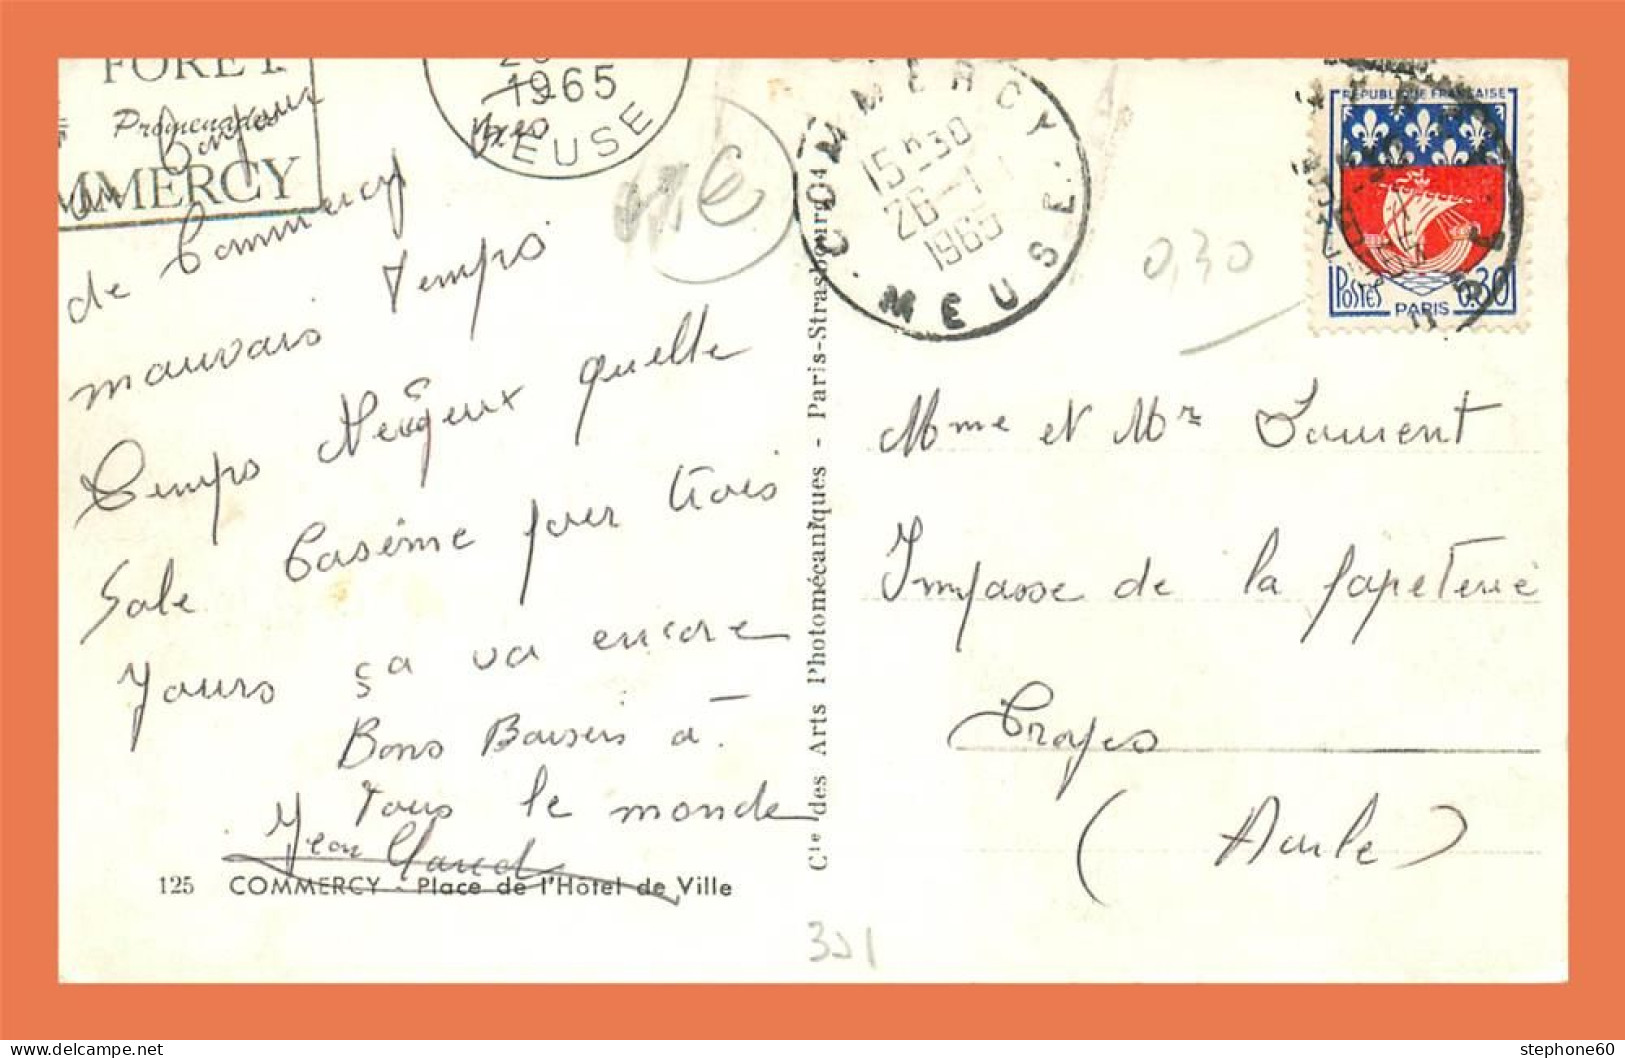 FORET
Promenades
COMMERCY
1965
MEUSE
Un Bonjour
de Commercy
Mes
mauvais Temps
Temps Neigeux quelle
Sale Caserne pour trois
Jours ça va encore
Bons Baisers à
Tous le monde
Jean Claud
125 COMMERCY - Place de l'Hôtel de Ville
Cie des Arts Photomécaniques - Paris-Strasbourg
COMMERCY
15H30
26-1
1965
MEUSE
0,30
REPUBLIQUE FRANCAISE
POSTES PARIS 0.30
Mme et Mr Laurent
Impasse de la papeterie
Troyes
(Aube)
321
stephone60